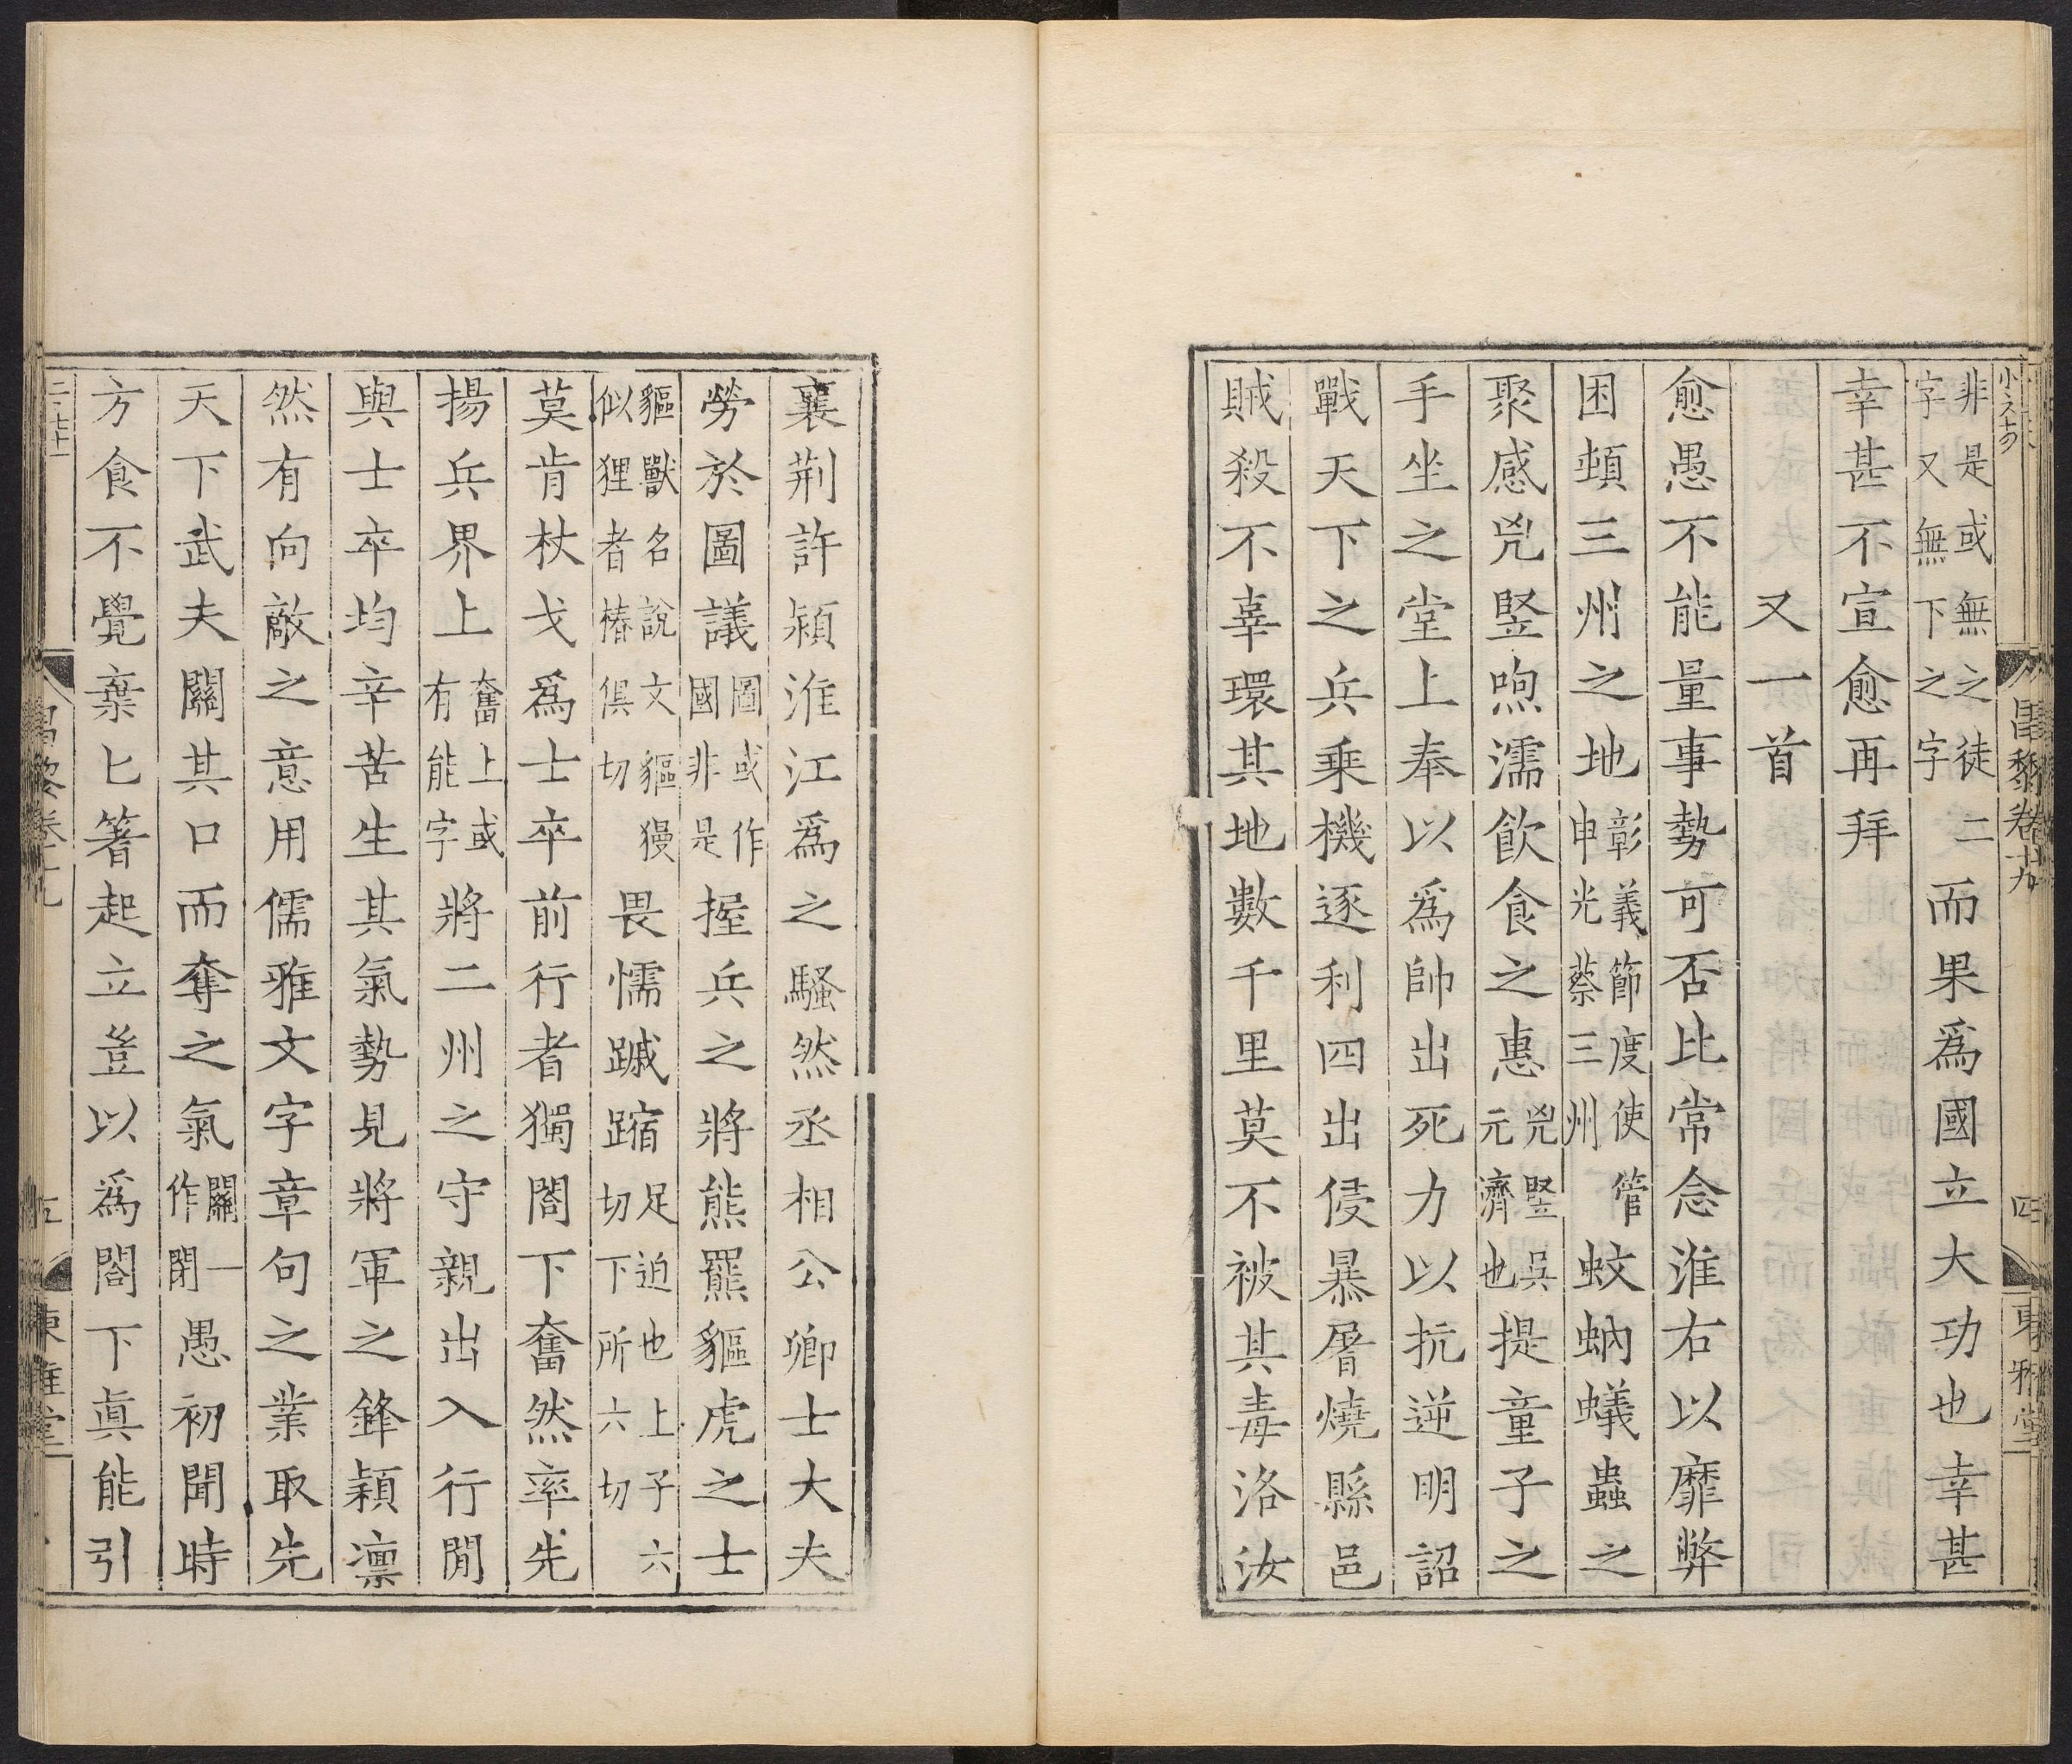 非是或無之徒二字又無下之字而果爲國立大功也幸甚
幸甚不宣愈再拜
又一首
愈愚不能量事勢可否比常念淮右以靡弊
困頓三州之地彰義節度使管申光蔡三州蚊蚋蟻蟲之
聚感兇竪呴濡飲食之惠兇竪吳元濟也提童子之
手坐之堂上奉以爲帥出死力以抗逆明詔
戰天下之兵乗機逐利四出侵暴屠燒縣邑
賊殺不辜環其地數千里莫不被其毒洛汝
襄荆許潁淮江爲之騷然丞相公卿士大夫
勞於圖議圖或作國非是握兵之將熊羆貙虎之士
貙獸名說文貙獌似狸者椿俱切畏懦蹴蹜足迫也上子六切下所六切
莫肯杖戈爲士卒前行者獨閤下奮然率先
揚兵界上奮上或有能字將二州之守親出入行閒
與士卒均辛苦生其氣勢見將軍之鋒穎凛
然有向敵之意用儒雅文字章句之業取先
天下武夫關其口而奪之氣關一作閉愚初聞時
方食不覺棄匕箸起立豈以爲閤下眞能引
昌黎卷十九
四
東雅堂
昌黎卷十九
五
東雅堂